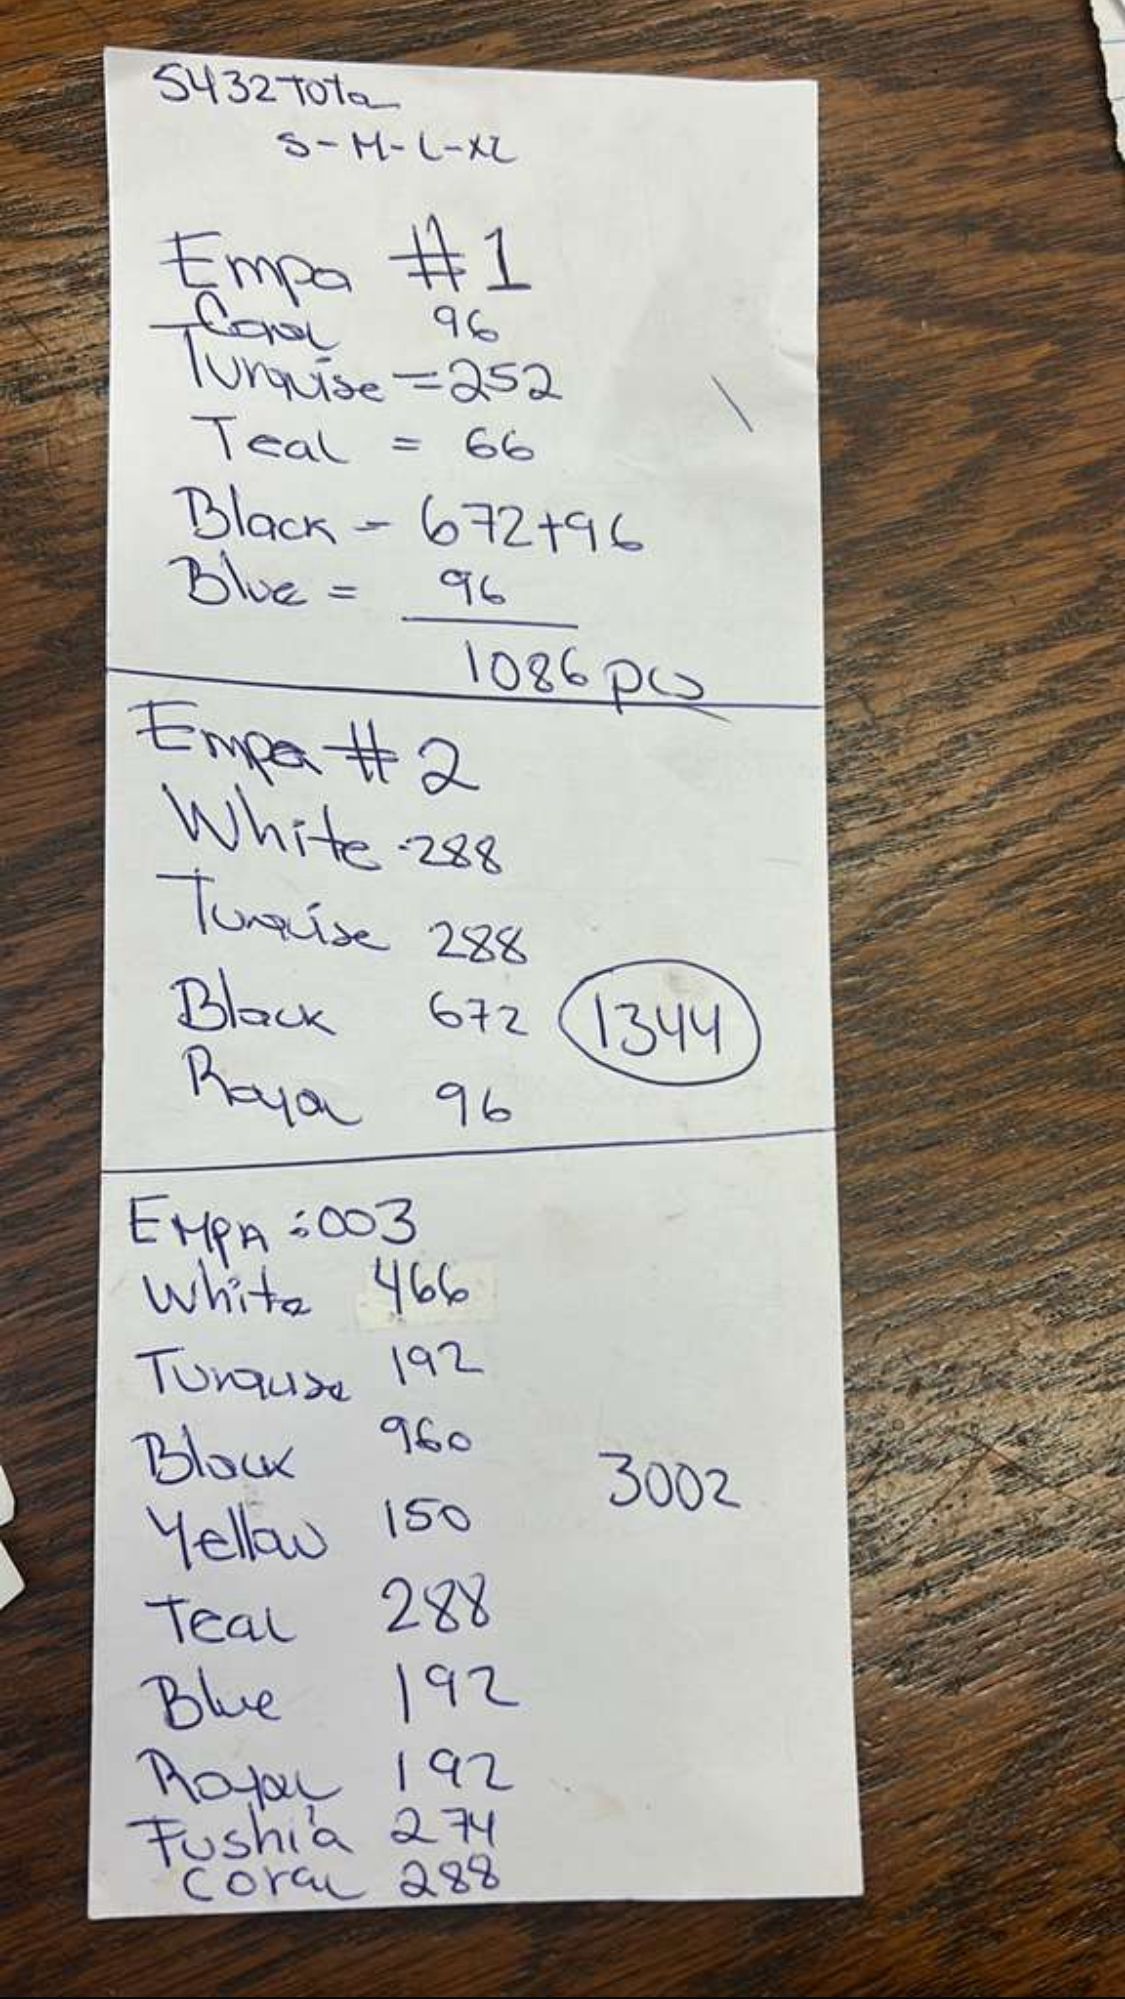 5432 Tota
S-M-L-XL
Empa #1
Coral 96
Turquise = 252
Teal = 66
Black - 672+96
Blue = 96
1086 pcs
Empa #2
White - 288
Turquise 288
Black 672 1344
Royal 96
EMPA : 003
White 466
Turquise 192
Black 960
3002
Yellow 150
Teal 288
Blue 192
Royal 192
Fushia 274
Coral 288